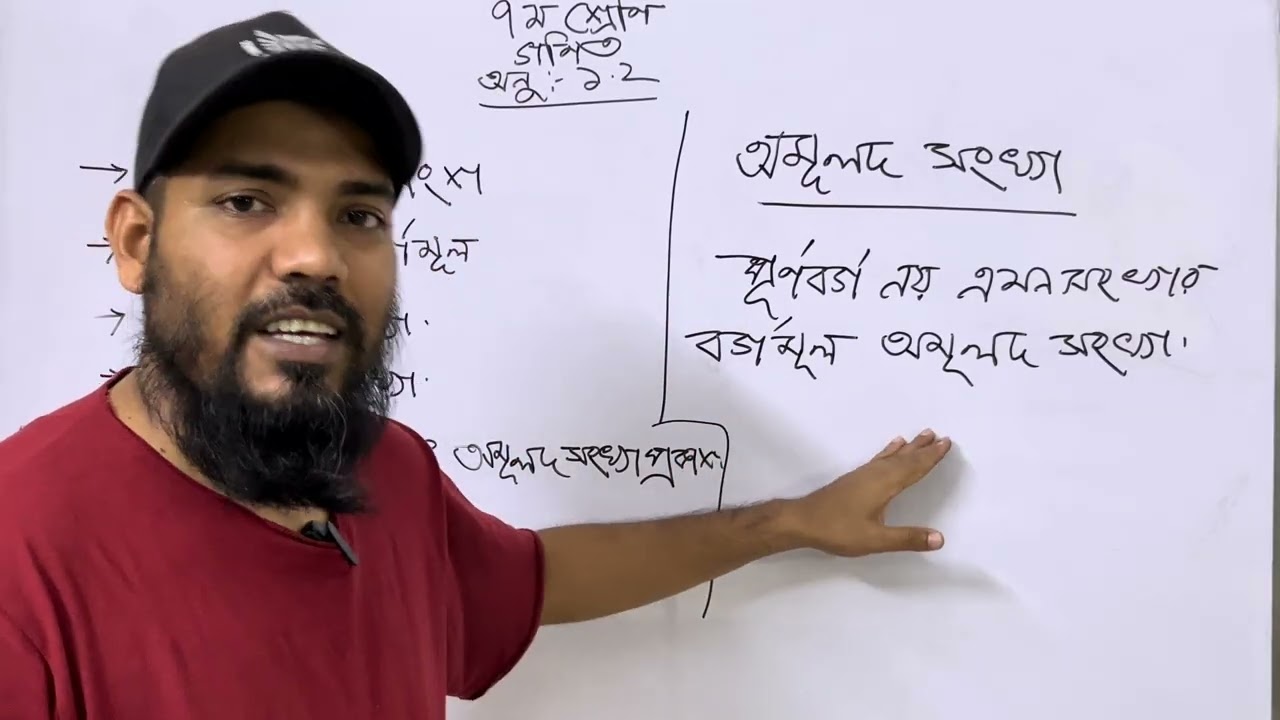 ৭ম শ্রেণি
গণিত
অনু :- ১.২
→
→
→
→
অমূলদ সংখ্যা প্রকাশ
অমূলদ সংখ্যা
পূর্ণবর্গ নয় এমন সংখ্যার
বর্গমূল অমূলদ সংখ্যা.